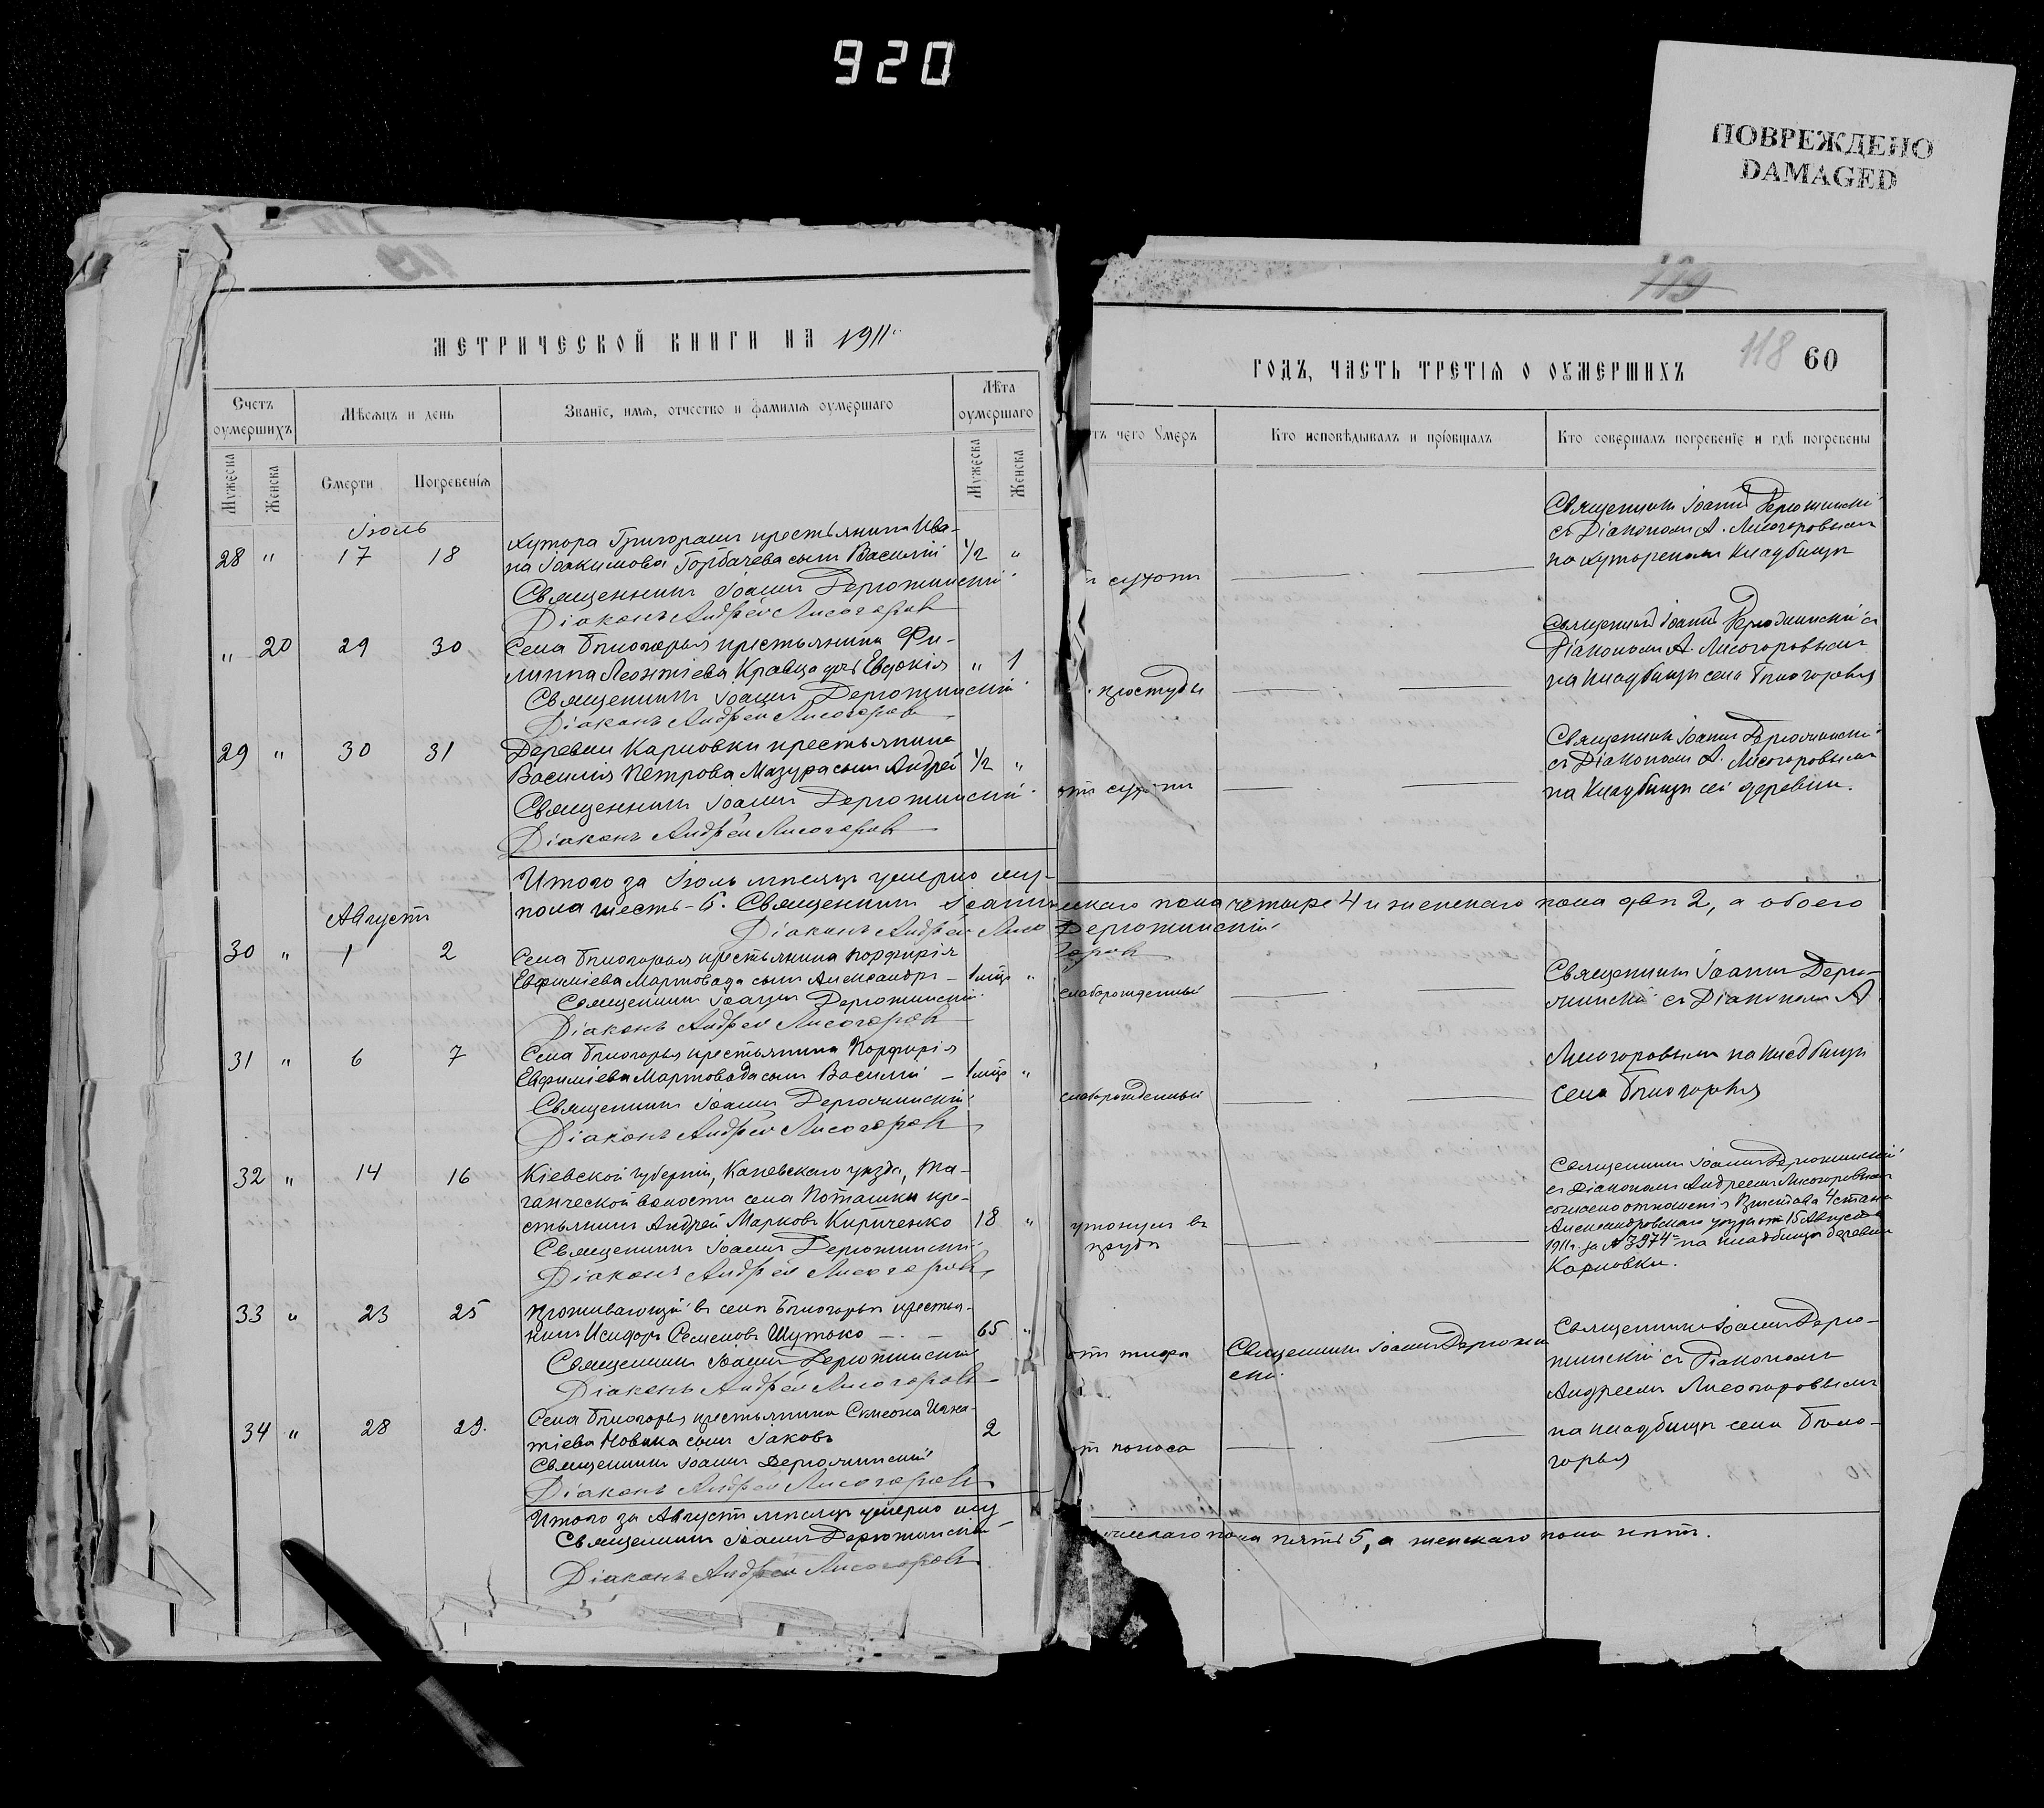 920
ПОВРЕЖДЕНО
DAMAGED
119
118 60
МЕТРИЧЕСКОЙ КНИГИ НА 1911
ГОДЪ, ЧАСТЬ ТРЕТІЯ О ОУМЕРШИХЪ
Счетъ оумершихъ
Мѣсяцъ и день
Званіе, имя, отчество и фамилія оумершаго
Лѣта оумершаго
тъ чего Умеръ
Кто исповѣдывалъ и пріобщалъ
Кто совершалъ погребеніе и гдѣ погребены
Мужеска
Женска
Смерти
Погребенія
Мужеска
Женска
Іюль
28 " 17 18
Хутора Григораши крестьянина Ива-
на Іоакимова Горбачева сынъ Василій 1/2 "
Священникъ Іоаннъ Дерюжинскій
Діаконъ Андрей Лисогоровъ
сухотъ
Священникъ Іоаннъ Дерюжинскій
съ Діакономъ А. Лисогоровымъ
на хуторскомъ кладбищѣ
" 20 29 30
Села Бѣлогорья крестьянина Фи-
липпа Леонтіева Кравца дочь Евдокія " 1
Священникъ Іоаннъ Дерюжинскій
Діаконъ Андрей Лисогоровъ
простуды
Священникъ Іоаннъ Дерюжинскій съ
Діакономъ А. Лисогоровымъ
на кладбищѣ села Бѣлогорья
29 " 30 31
Деревни Карловки крестьянина
Василія Петрова Мазура сынъ Андрей 1/2 "
Священникъ Іоаннъ Дерюжинскій
Діаконъ Андрей Лисогоровъ
отъ сухоты
Священникъ Іоаннъ Дерюжинскій
съ Діакономъ А. Лисогоровымъ
на кладбищѣ сей деревни.
Итого за Іюль мѣсяцъ умерло му-
жскаго пола четыре 4 и женскаго пола двѣ 2, а обоего
пола шесть - 6. Священникъ Іоаннъ Дерюжинскій
Діаконъ Андрей Лисогоровъ
Августъ
30 " 1 2
Села Бѣлогорья крестьянина Порфирія
Евфиміева Мартовода сынъ Александръ - 1 мѣс. "
Священникъ Іоаннъ Дерюжинскій
Діаконъ Андрей Лисогоровъ
слаборожденный
Священникъ Іоаннъ Дерю-
жинскій съ Діакономъ А.
31 " 6 7
Села Бѣлогорья крестьянина Порфирія
Евфиміева Мартовода сынъ Василій - 1 мѣс. "
Священникъ Іоаннъ Дерюжинскій
Діаконъ Андрей Лисогоровъ
слаборожденный
Лисогоровымъ на кладбищѣ
села Бѣлогорья
32 " 14 16
Кіевской губерніи, Каневскаго уѣзда, Та-
ганческой волости села Поташни кре-
стьянинъ Андрей Марковъ Кириченко 18 "
Священникъ Іоаннъ Дерюжинскій
Діаконъ Андрей Лисогоровъ
утонулъ въ
пруду
Священникъ Іоаннъ Дерюжинскій
съ Діакономъ Андреемъ Лисогоровымъ
согласно отношенія Пристава 4 стана
Александровскаго уѣзда отъ 15 Августа
1911 г. за № 3974 на кладбищѣ деревни
Карловки.
33 " 23 25
Проживающій въ селѣ Бѣлогорьѣ крестья-
нинъ Исидоръ Семеновъ Шутько 65 "
Священникъ Іоаннъ Дерюжинскій
Діаконъ Андрей Лисогоровъ
отъ тифа
Священникъ Іоаннъ Дерюжин
скій
Священникъ Іоаннъ Дерю-
жинскій съ Діакономъ
Андреемъ Лисогоровымъ
34 " 28 29.
Села Бѣлогорья крестьянина Симеона Игна-
тіева Новака сынъ Іаковъ 2
Священникъ Іоаннъ Дерюжинскій
Діаконъ Андрей Лисогоровъ
от поноса
на кладбищѣ села Бѣло-
горья
Итого за Августъ мѣсяцъ умерло му
жескаго пола пять 5, а женскаго пола нѣтъ.
Священникъ Іоаннъ Дерюжинскій
Діаконъ Андрей Лисогоровъ